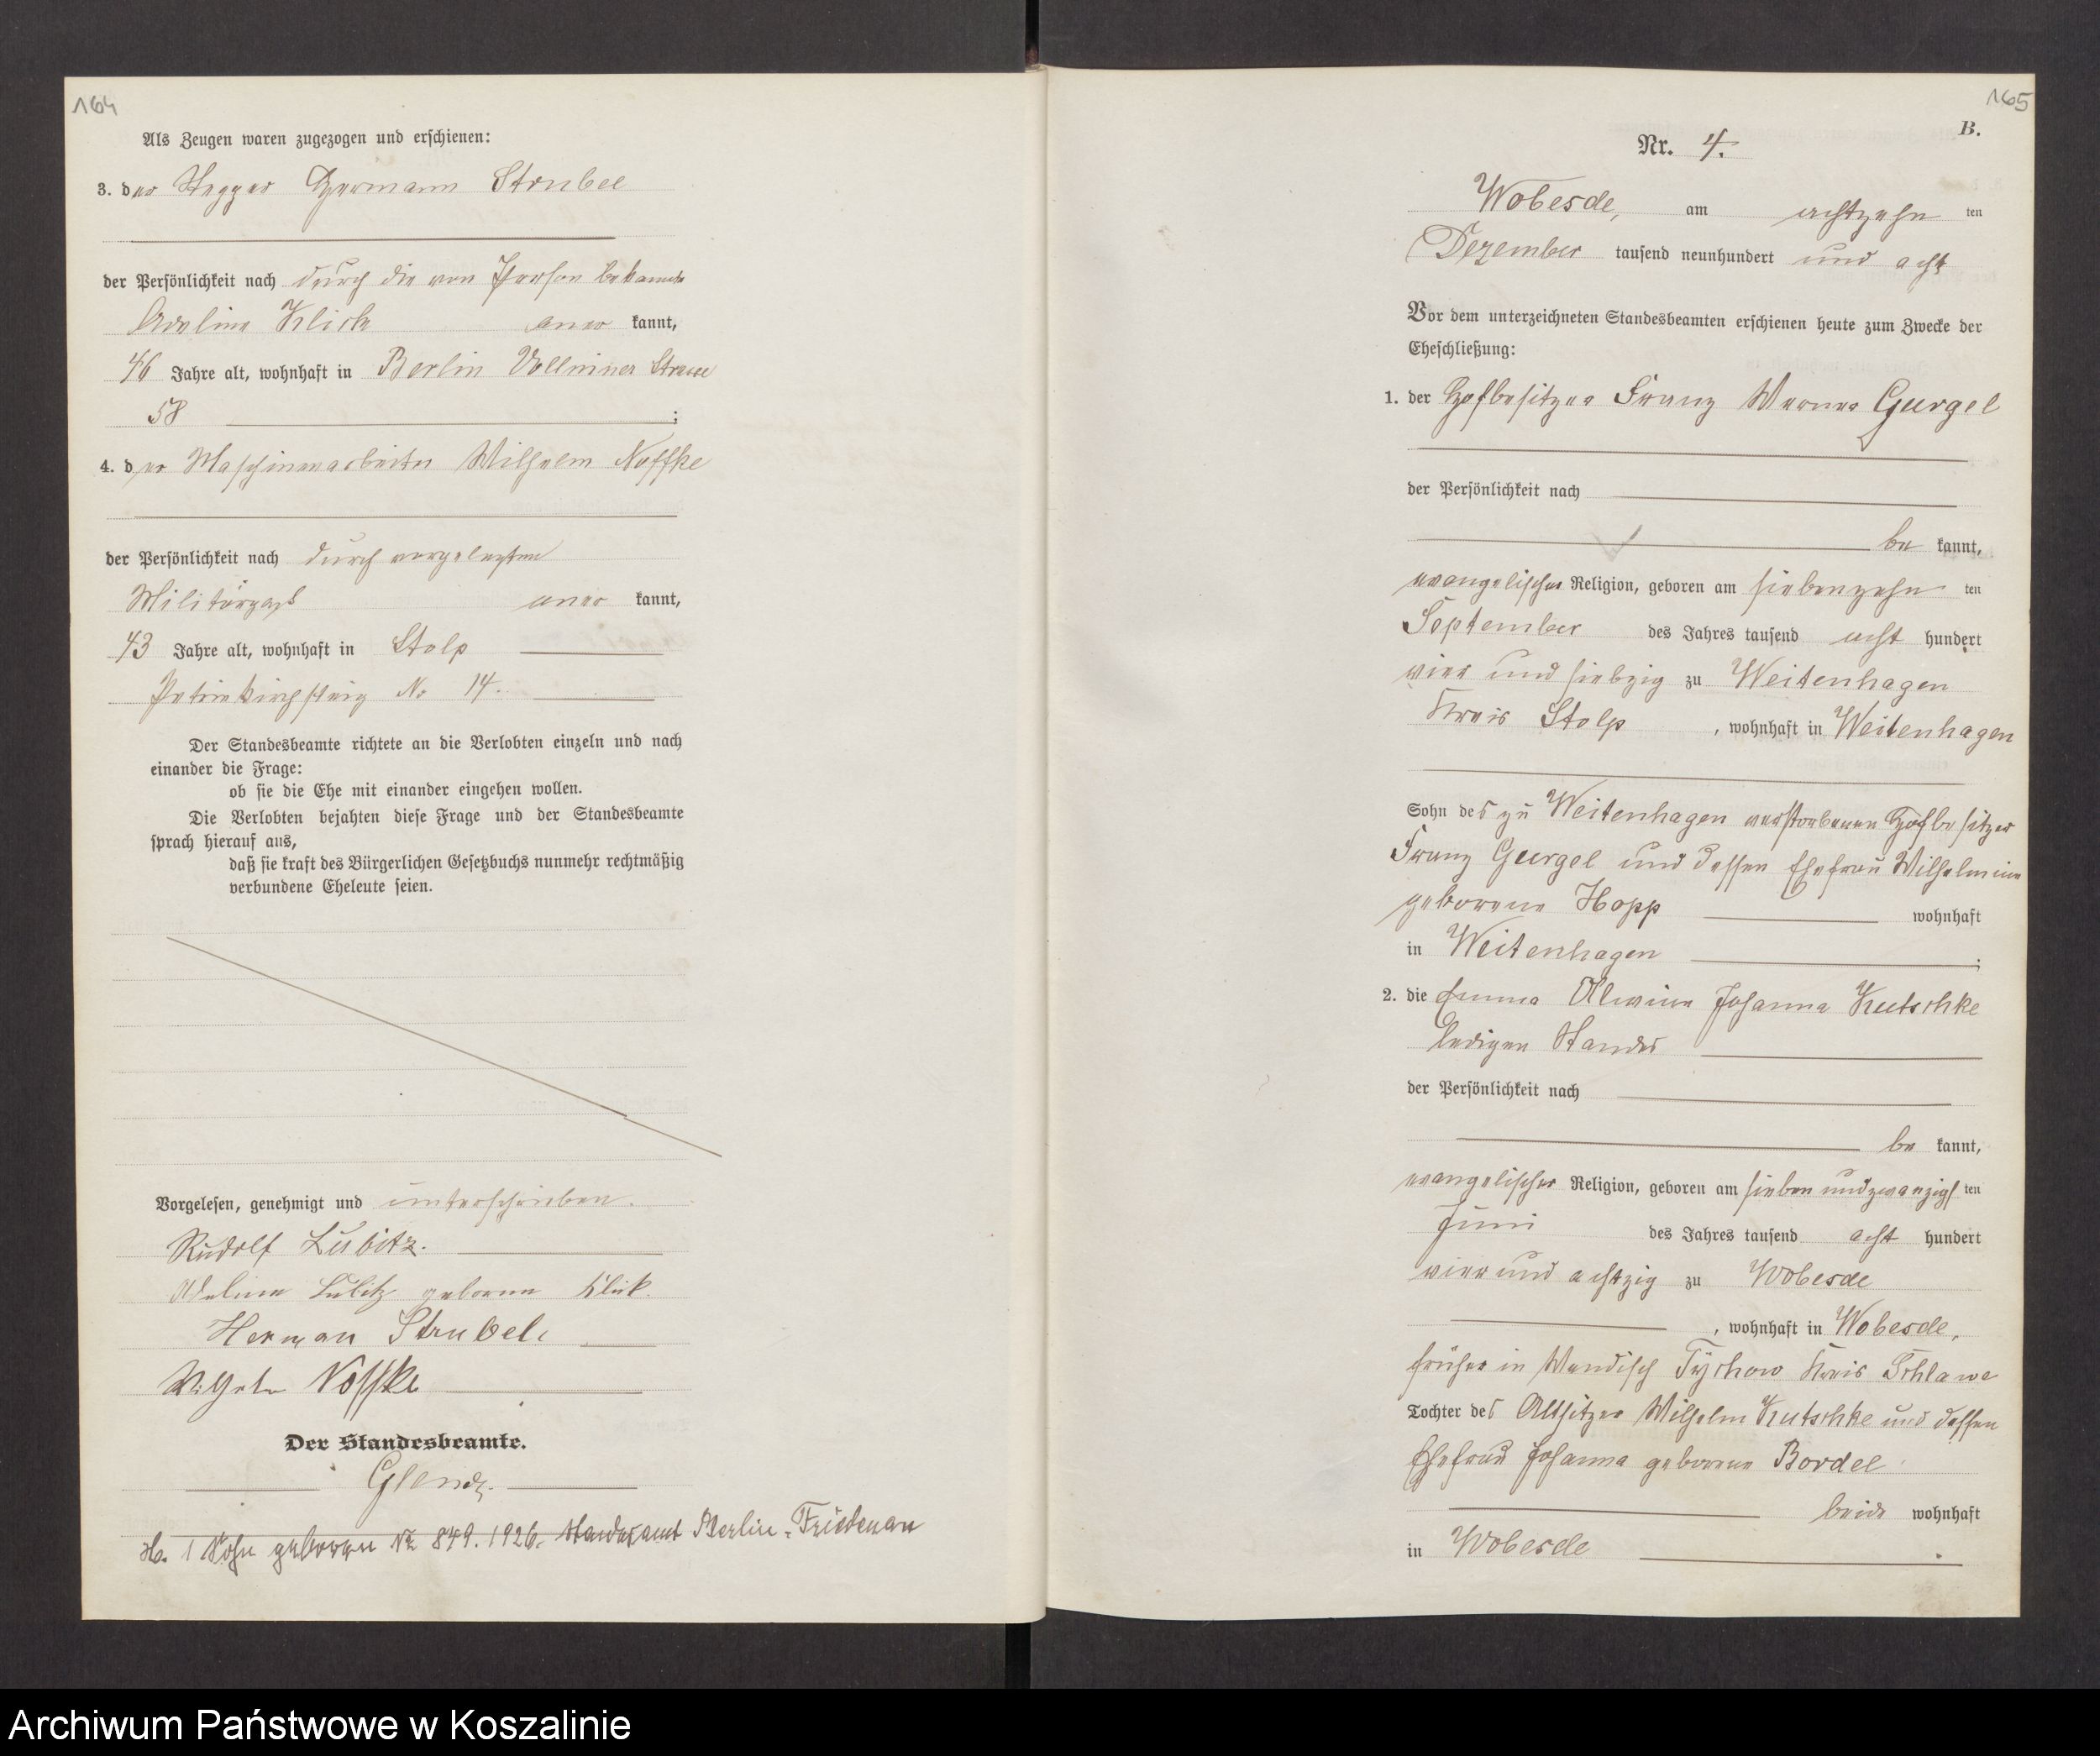 164
Als Zeugen waren zugezogen und erschienen:
3. der Hermann Strubel
der Persönlichkeit nach durch die von Person bekannte
Adeline Klick anerkannt,
46 Jahre alt, wohnhaft in Berlin Strasse
58 ;
4. der Maschinenarbeiter Wilhelm Noffke
der Persönlichkeit nach durch vorgelegten
Militärpaß anerkannt,
43 Jahre alt, wohnhaft in Stolp
Petrikirchsteig No 14.
Der Standesbeamte richtete an die Verlobten einzeln und nach
einander die Frage:
ob sie die Ehe mit einander eingehen wollen.
Die Verlobten bejahten diese Frage und der Standesbeamte
sprach hierauf aus,
daß sie kraft des Bürgerlichen Gesetzbuchs nunmehr rechtmäßig
verbundene Eheleute seien.
Vorgelesen, genehmigt und unterschrieben.
Rudolf Lübitz.
Adeline Lübitz geborene Klick.
Herman Strubel
Wilhelm Noffke
Der Standesbeamte.
Glendz.
H. 1 Sohn geboren No 849. 1926. Standesamt Berlin-Friedenau
165
B.
Nr. 4.
Wobesde, am achtzehnten
Dezember tausend neunhundert und acht
Vor dem unterzeichneten Standesbeamten erschienen heute zum Zwecke der
Eheschließung:
1. der Hofbesitzer Franz Werner Gurgel
der Persönlichkeit nach
bekannt,
evangelischer Religion, geboren am siebenzehnten
September des Jahres tausend achthundert
vier und siebzig zu Weitenhagen
Kreis Stolp, wohnhaft in Weitenhagen
Sohn des zu Weitenhagen verstorbenen Hofbesitzer
Franz Gurgel und dessen Ehefrau Wilhelmine
geborene Hopp wohnhaft
in Weitenhagen ;
2. die Emma Alwine Johanna Kutschke
ledigen Standes
der Persönlichkeit nach
bekannt,
evangelischer Religion, geboren am sieben und zwanzigsten
Juni des Jahres tausend achthundert
vier und achtzig zu Wobesde
, wohnhaft in Wobesde,
früher in Wendisch Tychow Kreis Schlawe
Tochter des Altsitzer Wilhelm Kutschke und dessen
Ehefrau Johanna geborene Bordel
beide wohnhaft
in Wobesde .
Archiwum Państwowe w Koszalinie